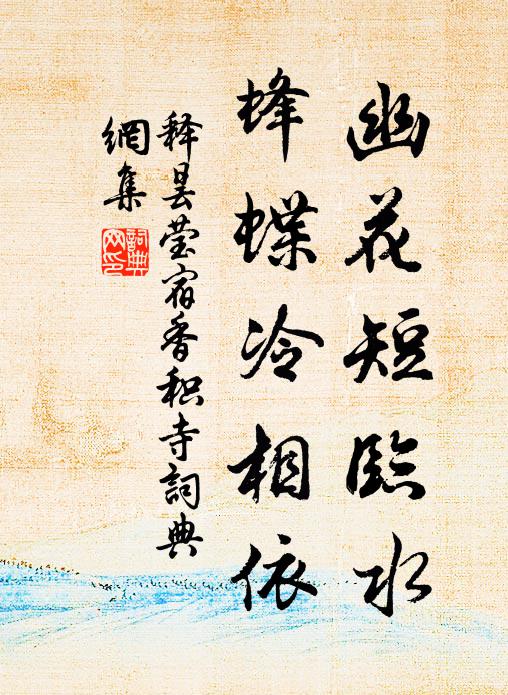 幽花短臨水
蜂蝶冷相依
释昙莹宿香积寺詞典
網集
詞典
网印